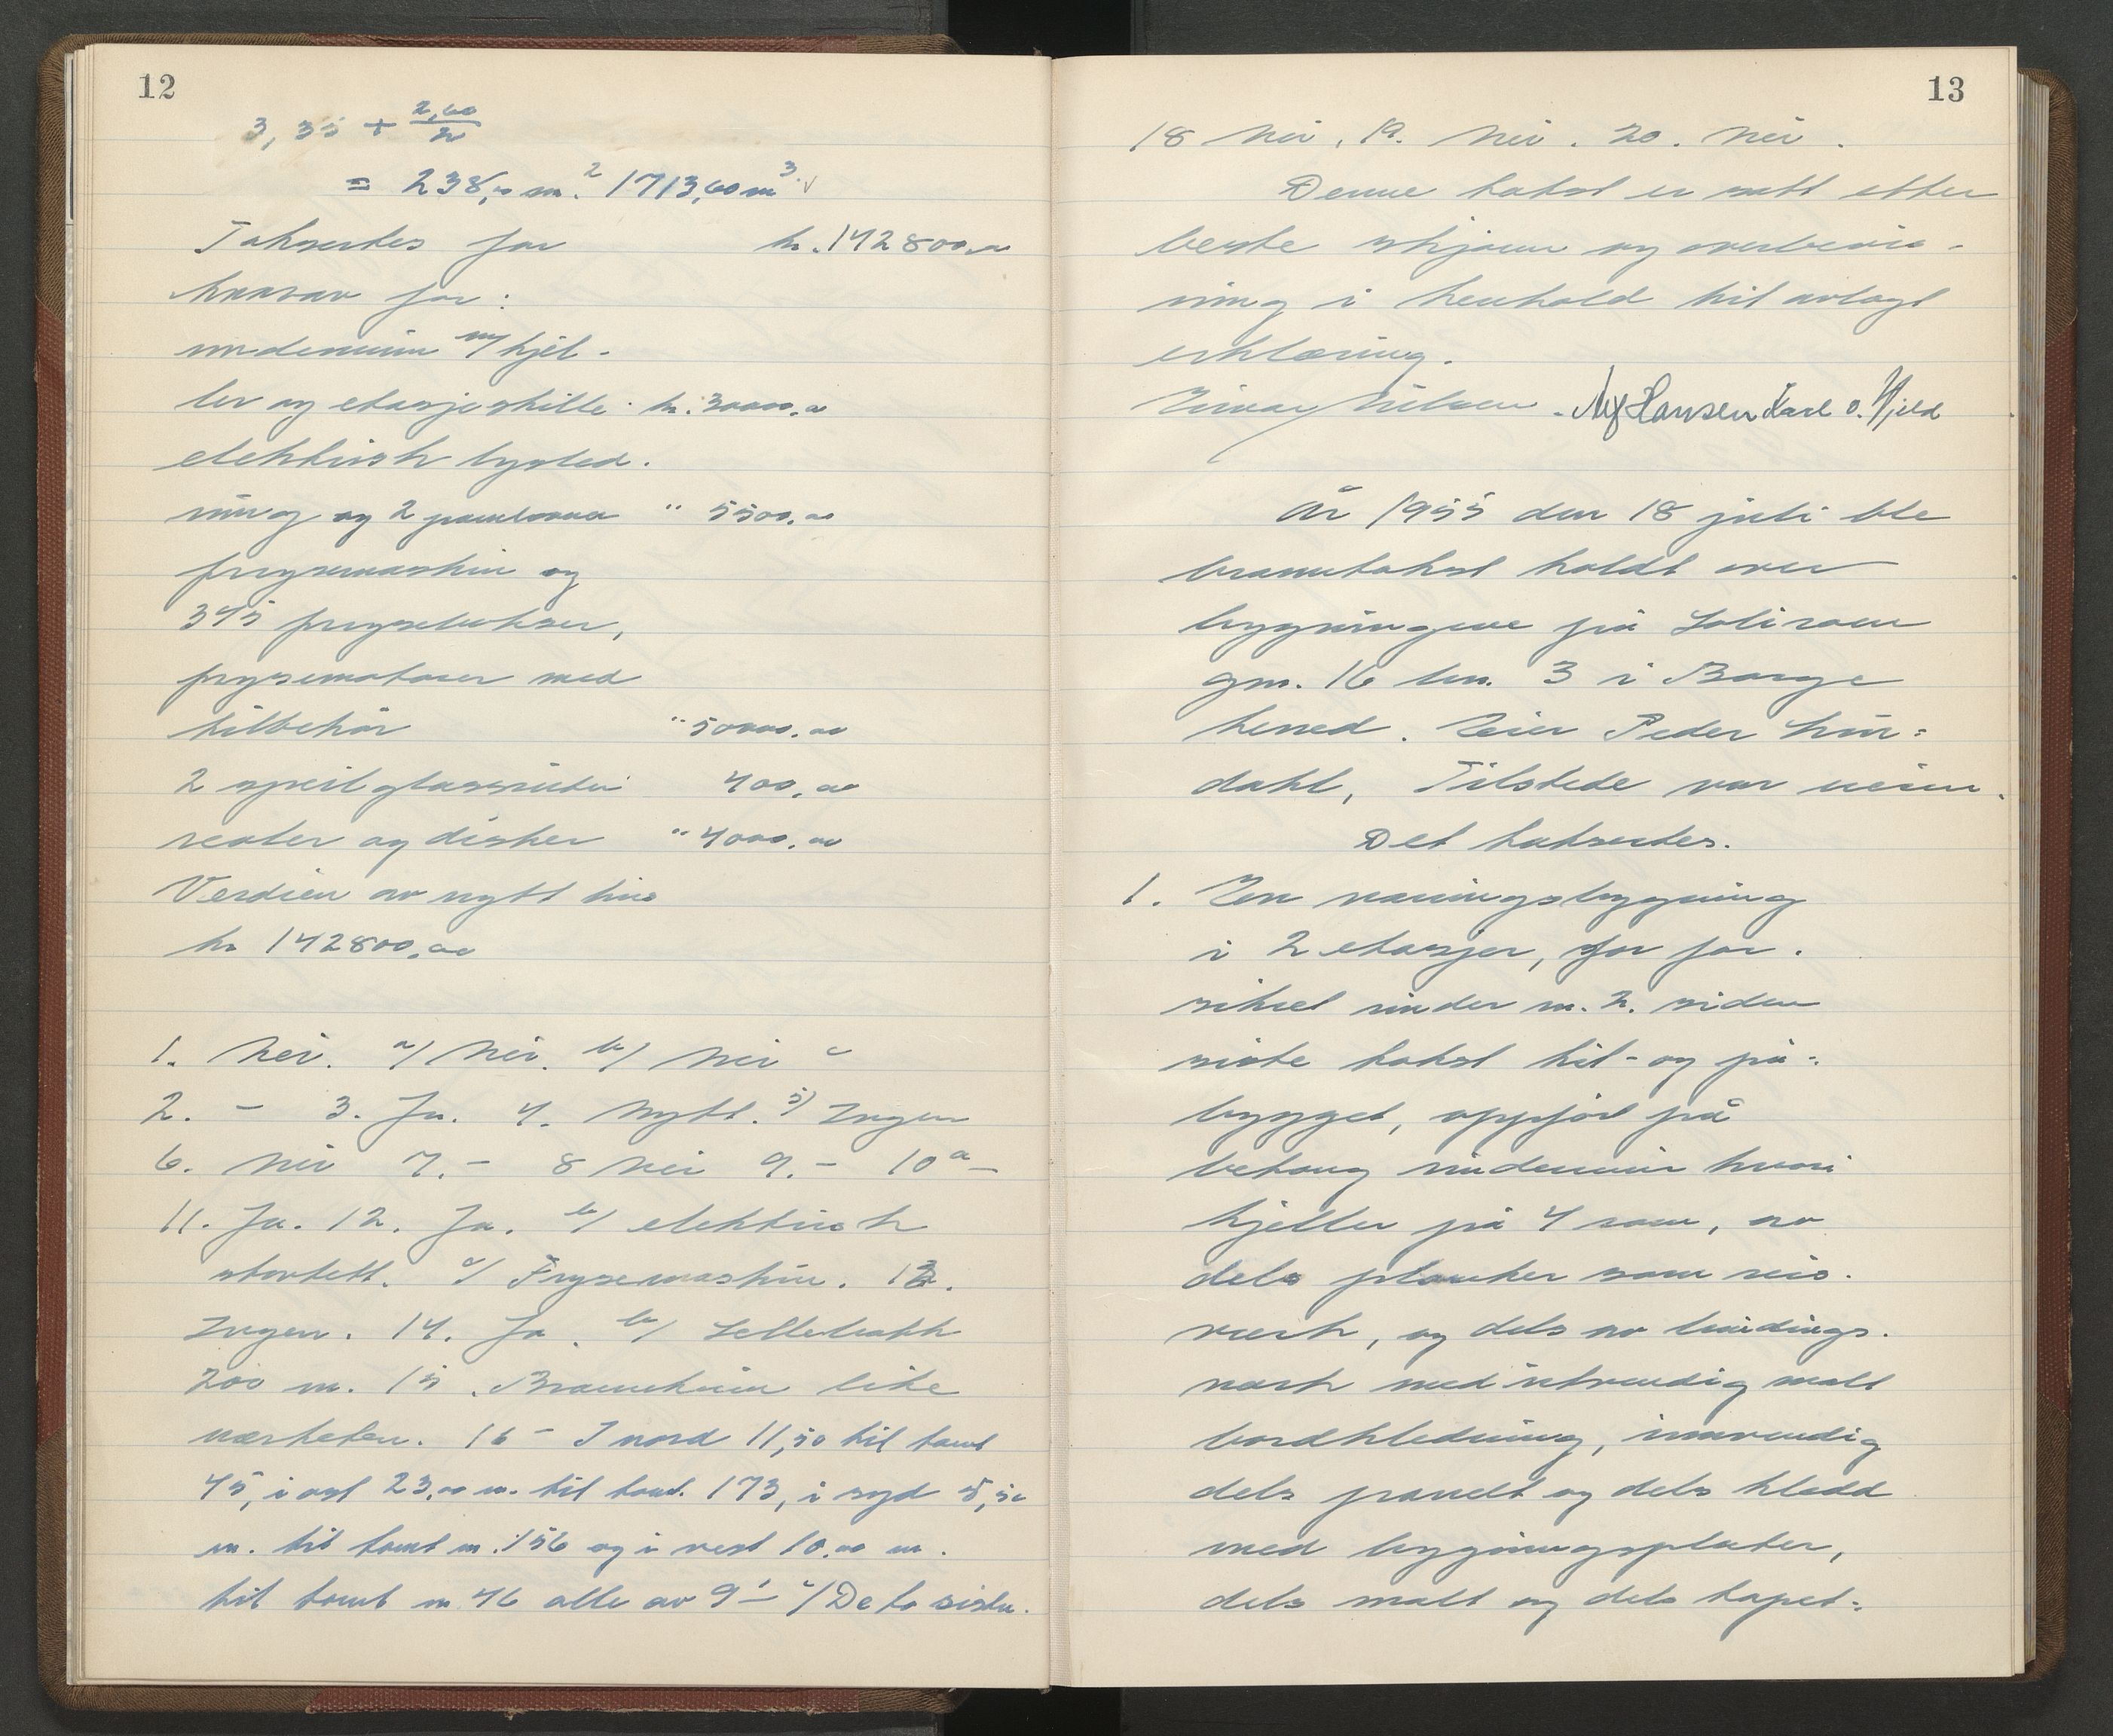 12
3,35 + 2,60/2
= 238,00 m.² 1713,60 m³
Takseres for kr. 142800,00
hvorav for:
undermur m/ kjel-
ler og etasjeskille kr. 30000,00
elektrisk lysled-
ning og 2 panelovner " 5500,00
frysemaskin og
345 frysebokser,
frysemotorer med
tilbehör " 50000,00
2 speilglassruter 400,00
reoler og disker " 4000,00
Verdien av nytt hus
kr 142800,00
1. Nei. a/ Nei. b/ Nei c
2. – 3. Ja. 4. Nytt. 5) Ingen
6. Nei 7. – 8 Nei 9. – 10 a –
11. Ja. 12. Ja. b/ elektrisk
 c/ Frysemaskin. 13.
Ingen. 14. Ja. b/ Lellebakk
200 m. 15. i
nærheten. 16 – I nord 11,50 til tomt
45, i ost 23,00 m. til tomt. 173, i syd 8,50
m. til tomt nr. 156 og i vest 10,00 m.
til tomt nr 46 alle av 9' – c/ De to siste.
13
18 Nei, 19. Nei. 20. Nei.
Denne takst er satt etter
beste skjönn og overbevis-
ning i henhold til avlagt
erklæring.
Einar Nilsen. Alf Hansen Karl O. Hjeld
År 1955 den 18 juli ble
branntakst holdt over
bygningene på Solirom
gnr. 16 bnr. 3 i Borge
herred. Eier Peder Lun-
dahl, Tilstede var eieren.
Det takseres.
1. En våningsbygning
i 2 etasjer, för for-
sikret under nr. 2. siden
siste takst til- og på-
bygget, oppfört på
betong undermur hvori
kjeller på 4 rom, av
dels planker som reis-
verk, og dels av bindings-
verk med utvendig malt
bordkledning, innvendig
dels panelt og dels kledd
med bygningsplater,
dels malt og dels tapet-